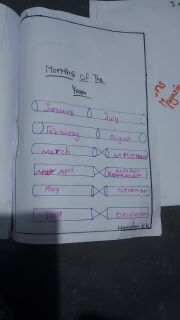 Months Of The
Year
January July
February August
March September
April October
May November
June December